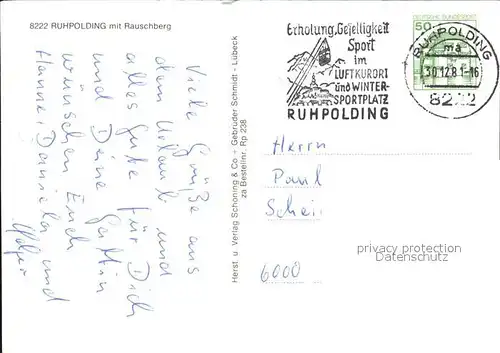 8222 RUHPOLDING mit Rauschberg
Viele Grüße aus
dem Urlaub und
alles Gute für Dich
und Deine Gattin
wünschen Euch
Hanne, Daniela und
Herst. u. Verlag Schöning & Co. - Gebrüder Schmidt - Lübeck
za Bestellnr. Rp 238
Erholung, Geselligkeit
Sport
im
LUFTKURORT
und WINTER-
SPORTPLATZ
RUHPOLDING
DEUTSCHE BUNDESPOST
50
RUHPOLDING
ma
30.12.81-16
8222
Herrn
Paul
6000
privacy protection
Datenschutz